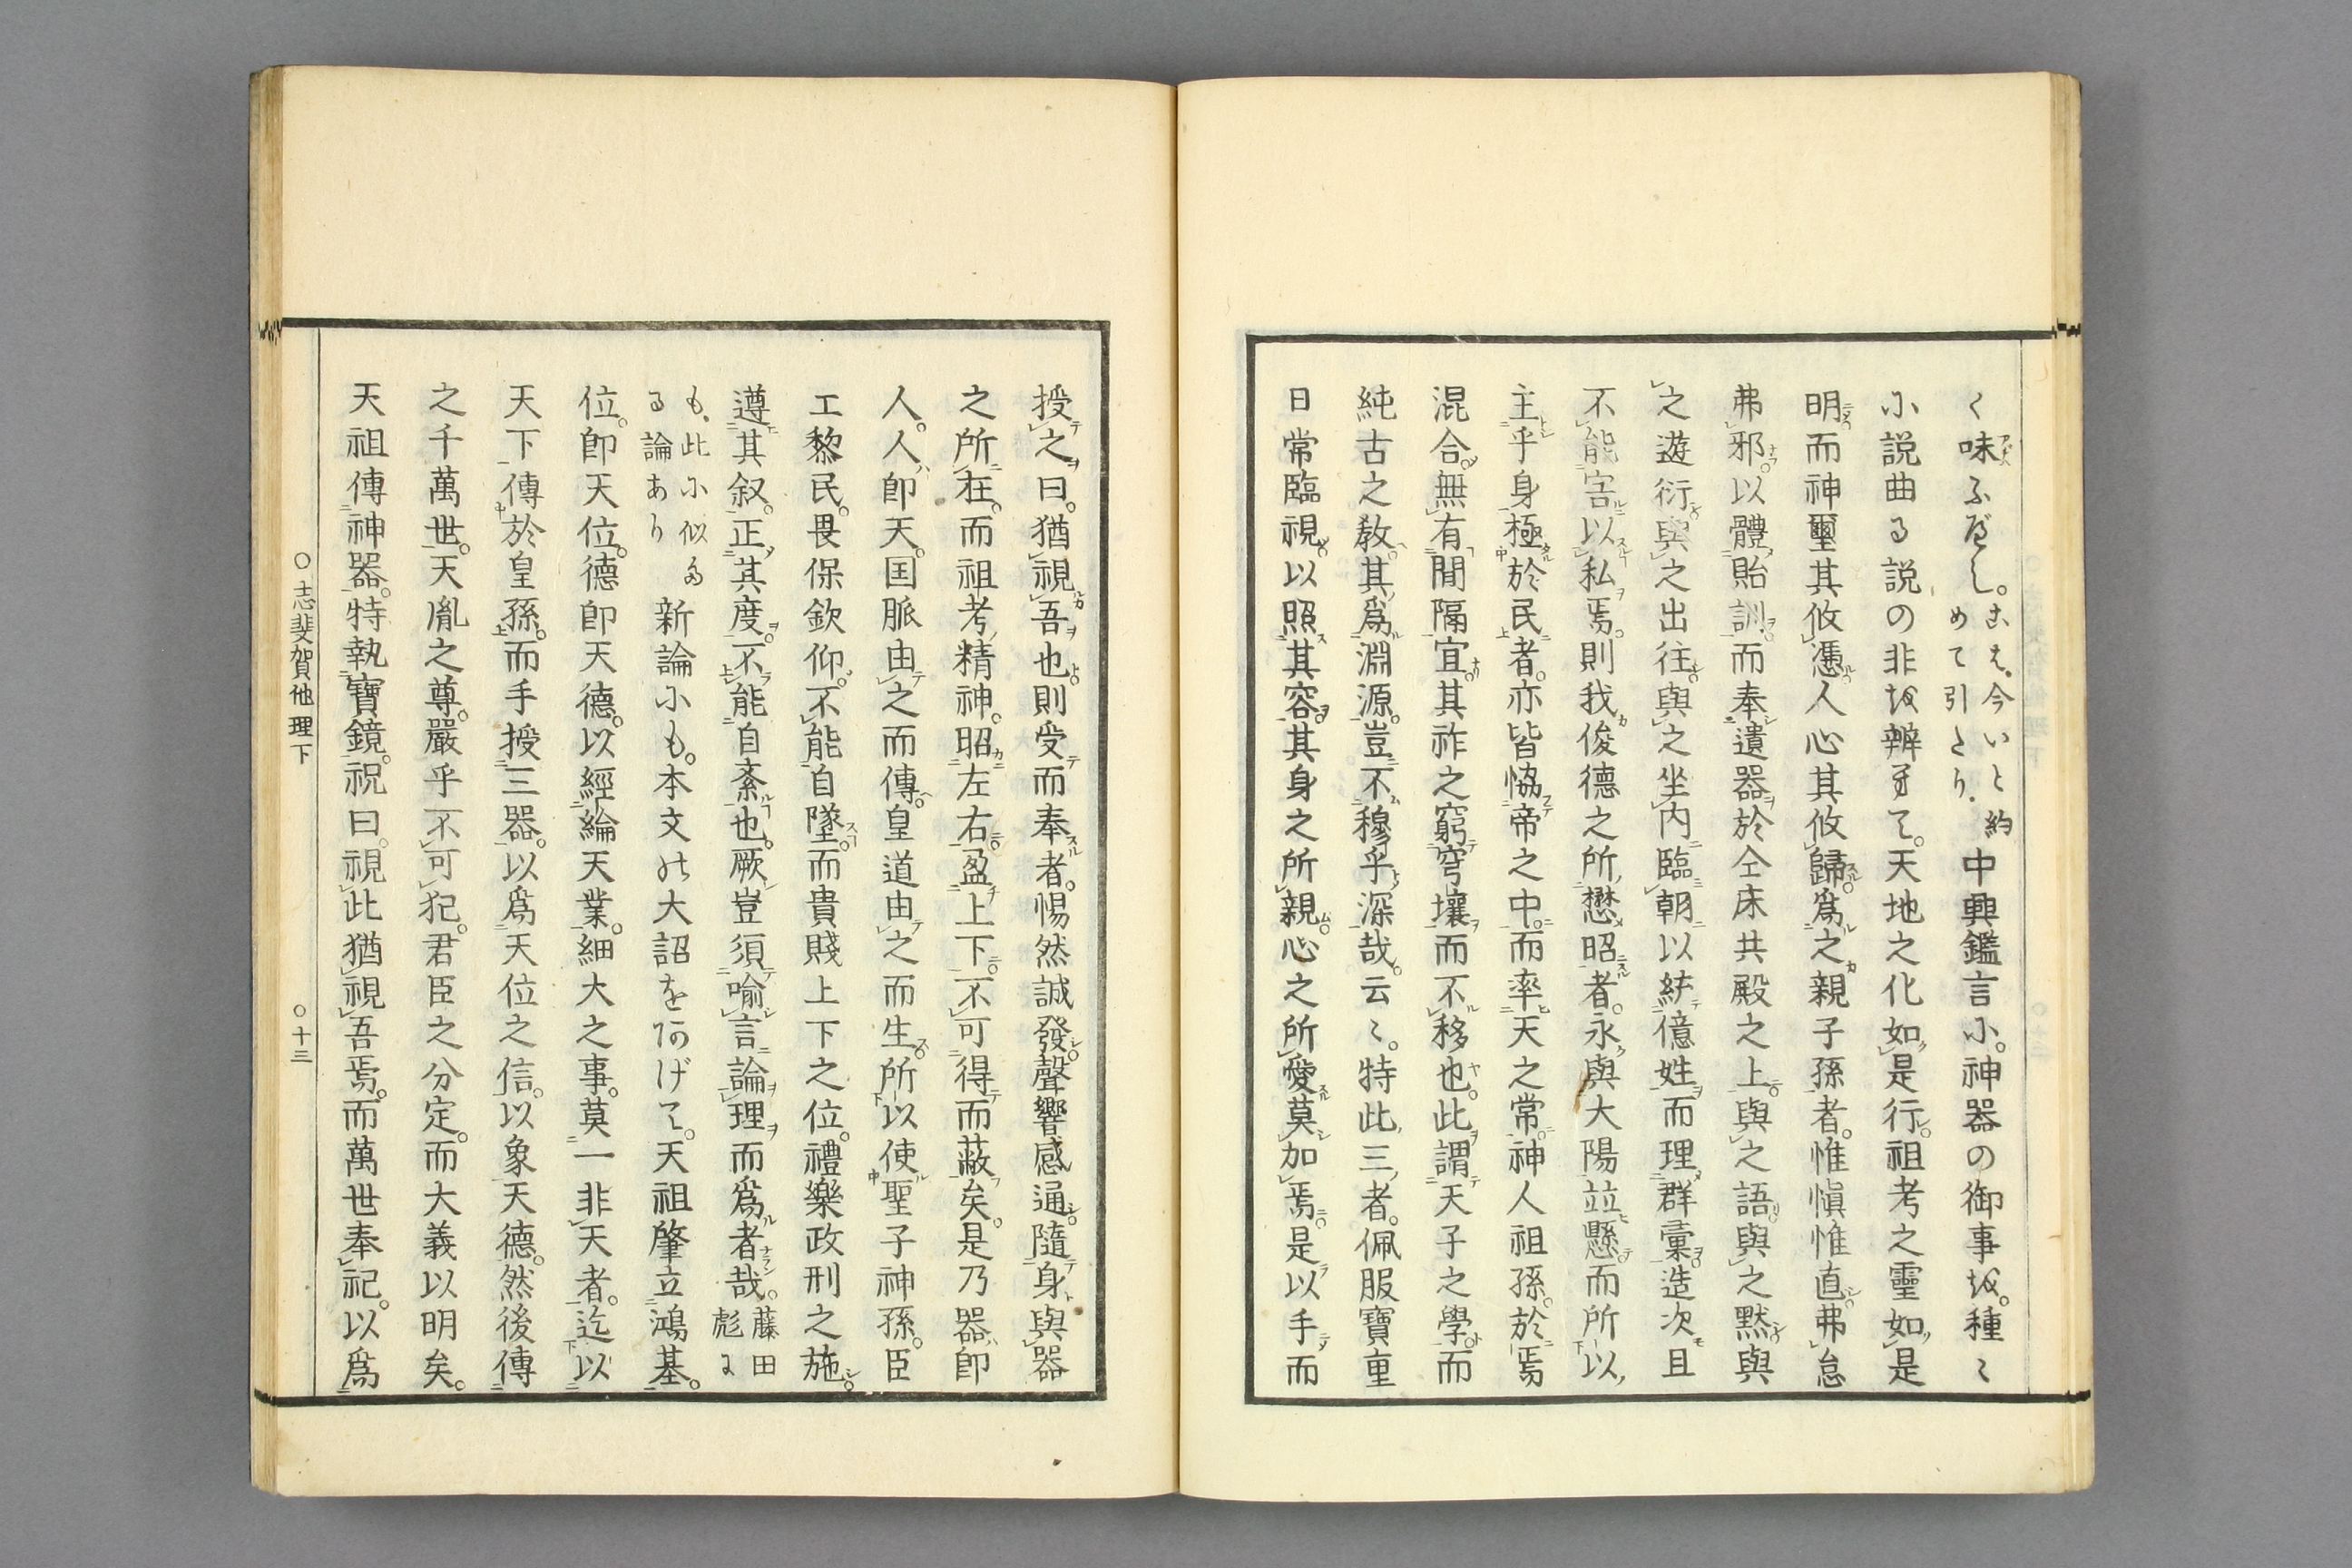 く味ふべし。こは、今いと約めて引たり。中興鑑言に。神器の御事を。種〻
に説曲る説の非を辨まて。天地之化如是行。祖考之靈如是
明而神璽其攸憑人心其攸歸爲之親子孫者。惟愼惟直弗怠
弗邪。以體貽訓而奉遺器於仝床共殿之上與之語與之黙與
之遊衍與之出往與之坐内臨朝以統億姓而理群彙造次且
不能害以私焉。則我俊德之所懋昭者。永與大陽竝懸而所以
主乎身極於民者。亦皆恊帝之中而率天之常神人祖孫於焉
混合無有間隔宜其祚之窮穹壤而不移也。此謂天子之學而
純古之敎。其爲淵源。豈不穆乎深哉。云〻。特此三者。佩服寶重
日常臨視。以照其容。其身之所親心之所愛莫加焉是以手而
授之曰。猶視吾也則受而奉者。惕然誠發聲響感通隨身與器
之所在。而祖考精神。昭左右盈上下。不可得而蔽矣。是乃器即
人。人即天。国脈由之而傳。皇道由之而生所以使聖子神孫。臣
工黎民。畏保欽仰。不能自墜。而貴賤上下之位。禮樂政刑之施。
遵其叙。正其度。不能自紊也。厥豈須喻言論理而爲者哉。藤田彪に
も。此に似たる論あり新論にも。本文の大詔をあげて。天祖肇立鴻基。
位。即天位。德即天德。以經綸天業。細大之事。莫一非天者。迄以
天下傳於皇孫。而手授三器。以爲天位之信。以象天德。然後傳
之千萬世。天胤之尊。嚴乎不可犯。君臣之分定。而大義以明矣。
天祖傳神器。特執寶鏡。祝曰。視此猶視吾焉。而萬世奉祀。以爲
○志斐賀他理下　○十三